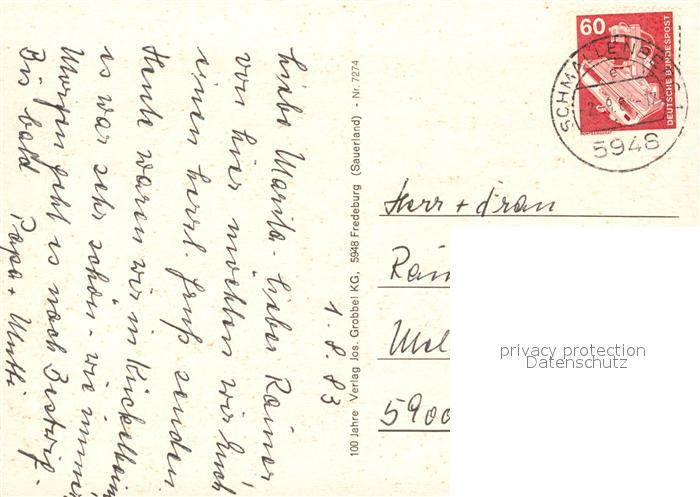 1.8.83
Liebe Marita - lieber Rainer
von hier möchten wir Euch
einen herzl. Gruß senden.
Heute waren wir in Kückelheim
es war sehr schön - wie immer
Morgen geht es nach Bestwig.
Bis bald
Papa + Mutti
100 Jahre Verlag Jos. Grobbel KG, 5948 Fredeburg (Sauerland) - Nr. 7274
60
DEUTSCHE BUNDESPOST
SCHMALLENBERG 1
5948
Herr + Frau
Rain
Mel
5900
privacy protection
Datenschutz